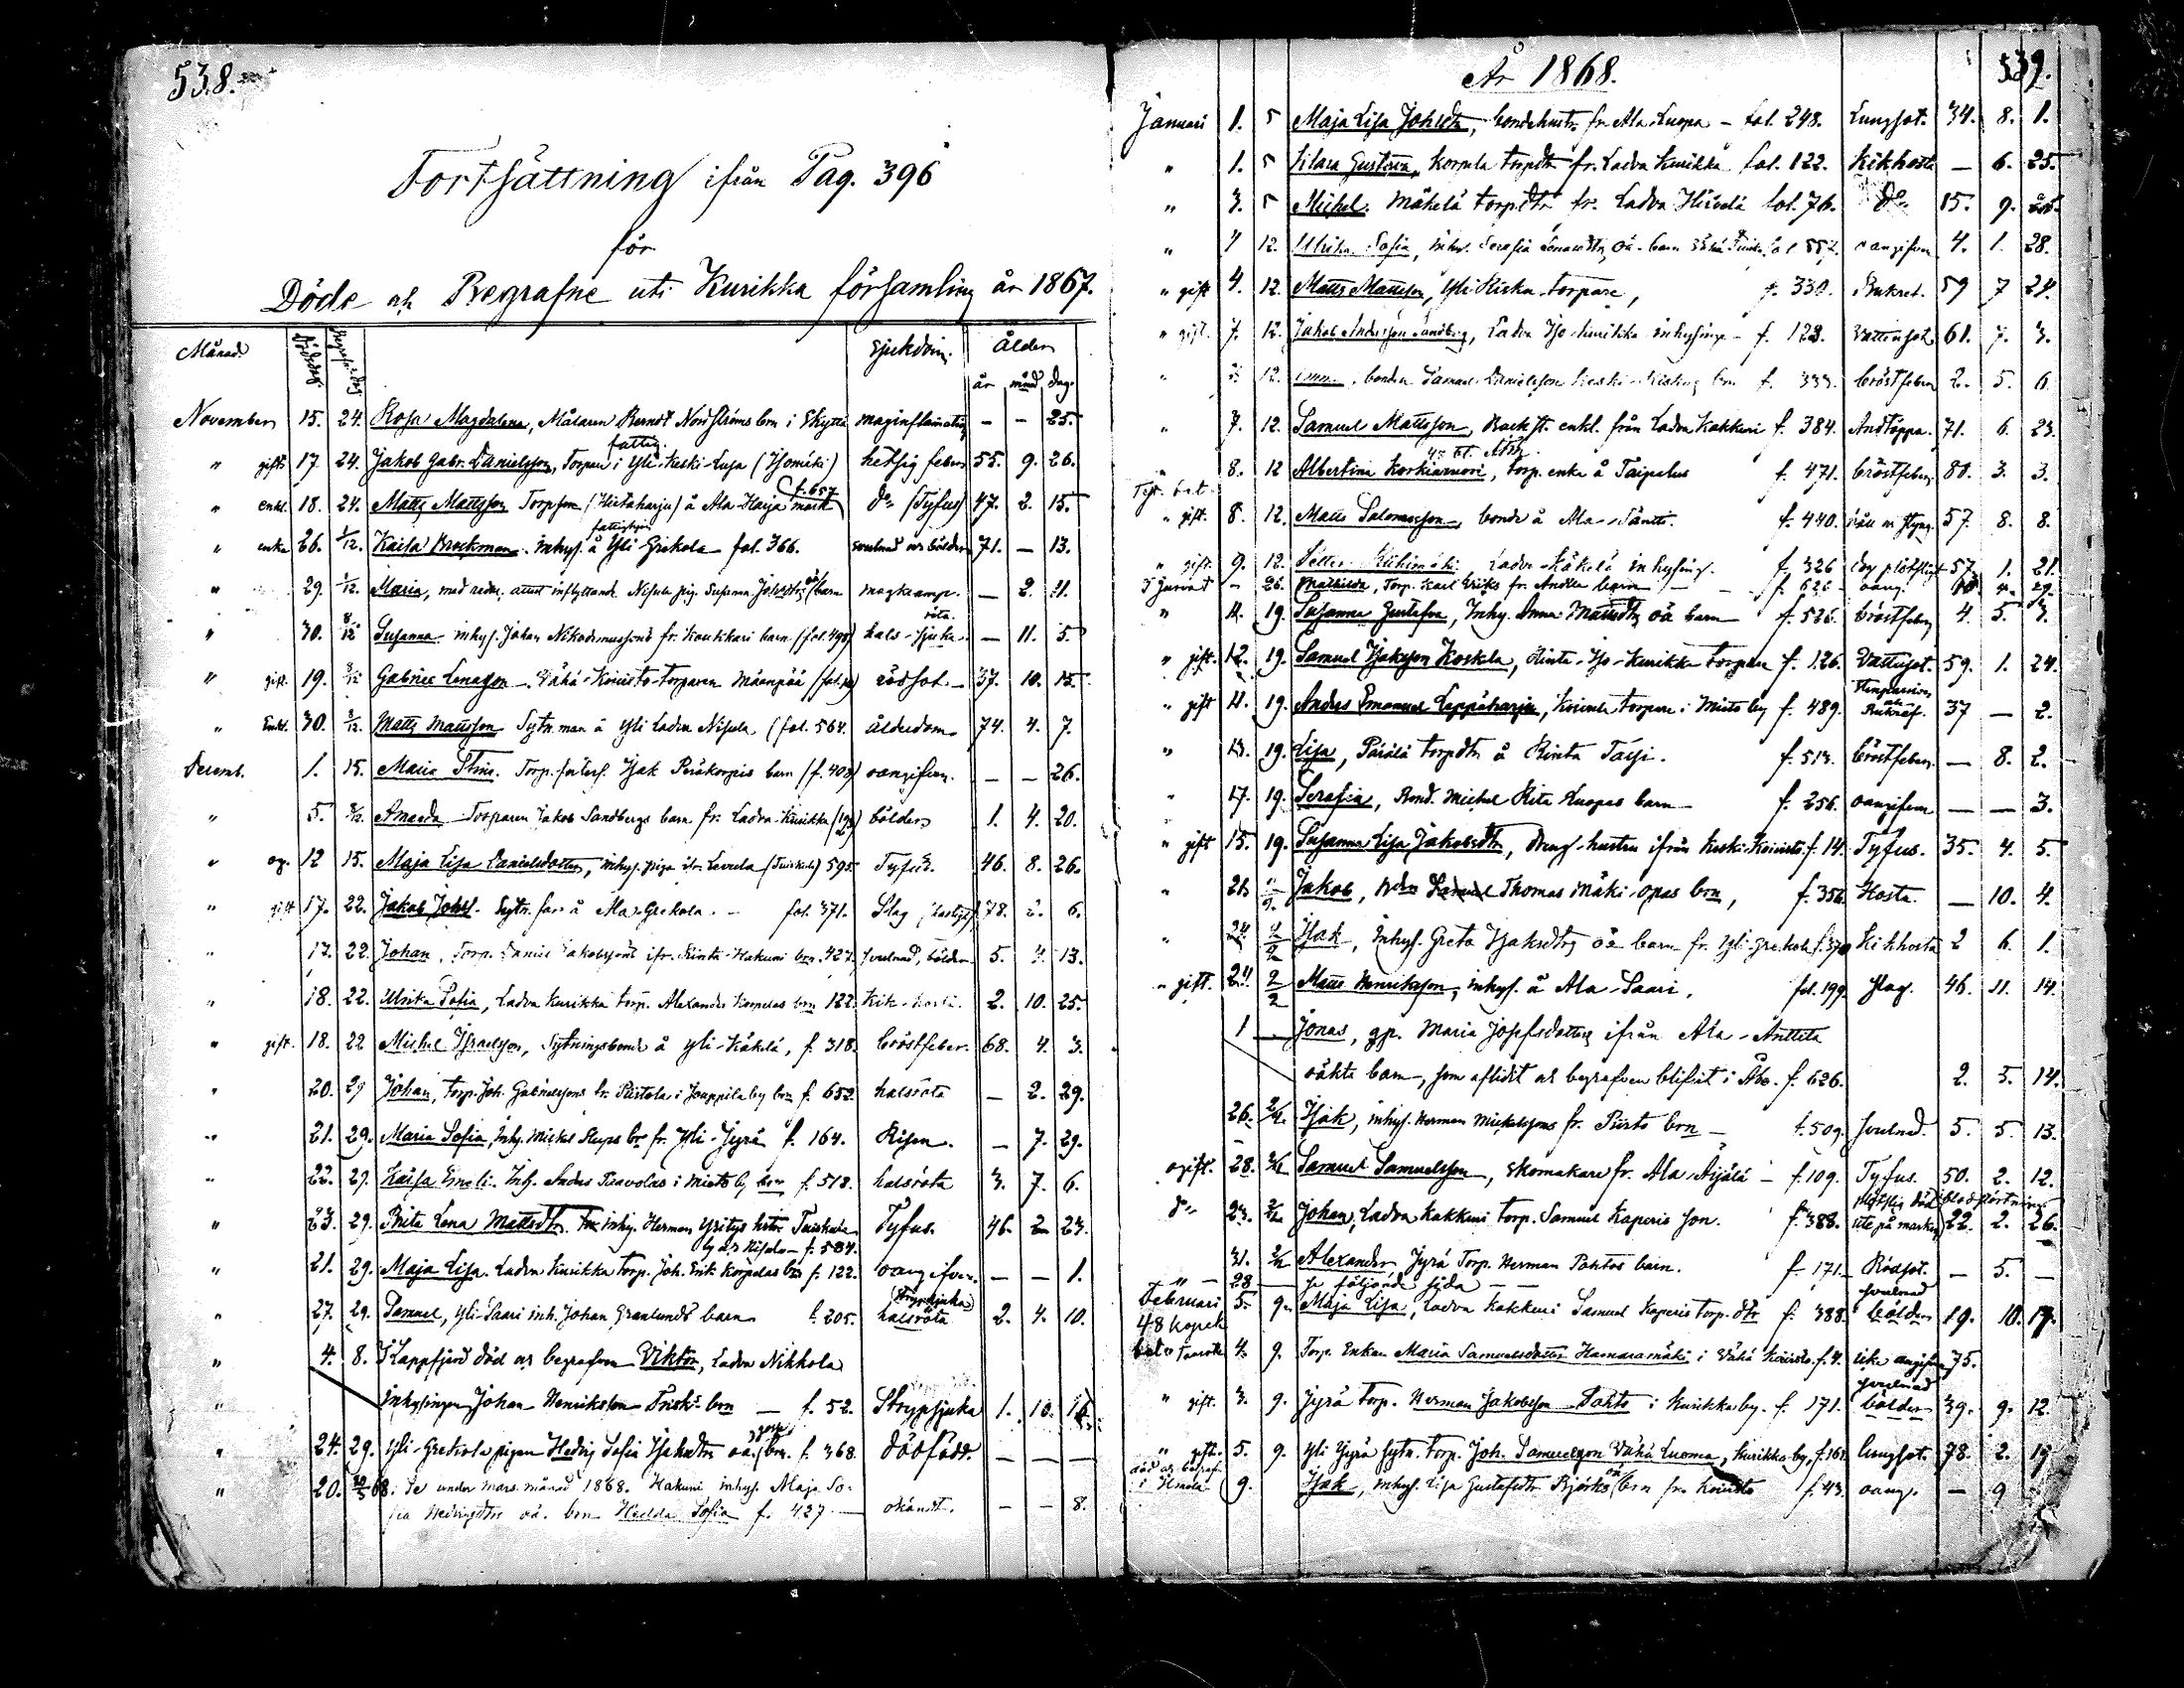 538.
Fortsättning ifrån Pag. 396
för
Döde och Begrafne uti Kurikka församling år 1867.
Månad. Dödsdag. Begrafn. dag Sjukdom. Ålder
år månd dag.
November 15. 24. Rosa Magdalena, Målaren Berndt Nordströms brn i Skyttä maginflamation — — 25.
fattig.
" gift 17. 24. Jakob Gabr. Danielsson, Torpare i Yli-Keski-Luja (Isomäki) hetsig feber 55. 9. 26.
f. 657
" enkl. 18. 24. Matts Mattsson Torpson (Hietaharju) å Ala-Harja mark do (Tyfus) 47. 2. 15.
fattighjon
" enka 26. 1/12. Kaisa Brockman. inhys. å Yli Grekola fol. 366. svulnad och bölder 71. — 13.
" 29. 1/12. Maria, med attest inflyttande Nisula pig. Susanna Johsdtrs oä barn magkramp. — 2. 11.
" 30. 8/12 Susanna inhys. Johan Nikodemussons fr. Koukkari barn (fol. 498) hals-sjuka röta. — 11. 5.
" gift. 19. 8/12 Gabriel Lenasson. Vähä-Koivisto-torparen Mäenpää rödsot. 37. 10. 15.
" Enkl. 30. 8/12. Matts Mattsson Sytn. man å Yli Ladva Nisula (fol. 564. ålderdom 74. 4. 7.
Decemb. 1. 15. Maria Stina. Torp. Isak Peräkorpis barn (f. 408) oangifven. — — 26.
" 5. 8/12. Amanda Torparen Jakob Sandbergs barn fr. Ladva-Kurikka bölder 1. 4. 20.
" og. 12 15. Maja Lisa Danielsdotter, inhys. piga ifr. Levula (Tuiskula) 595. Tyfus. 46. 8. 26.
" gift 17. 22. Jakob Johss. Sytn. far å Ala-Grekola. — fol. 371. Slag 78. 2. 6.
" 17. 22. Johan, Torp. Daniel Jakobssons ifr. Rinta-Hakuni brn. 427. svulnad, bölder. 5. 4. 13.
" 18. 22. Ulrika Sofia, Ladva Kurikka torp. Alexander Korpelas brn 122. Kik-hosta. 2. 10. 25.
" gift. 18. 22 Michel Israelsson, Sytningsbonde å Yli-Käkelä, f. 318. bröstfeber. 68. 4. 3.
" 20. 29 Johan, torp. Joh. Gabrielssons fr. Piirtola i Jouppila by brn f. 652. halsröta — 2. 29.
" 21. 29. Maria Sofia, Inhy. Michel Slups br fr. Yli-Jyrä f. 164. Risen. — 7. 29.
" 22. 29. Kaisa Emeli. Inh. Anders Paavolas i Mieto by brn f. 518. halsröta 3. 7. 6.
" 23. 29. Brita Lena Mattsdtr. inhy. Herman Yritys hstr Tuiskula Tyfus. 46. 2 23.
by och Nisula f. 584.
" 21. 29. Maja Lisa. Ladva Kurikka torp. Joh. Erik Korpelas brn f. 122. oangifven. — — 1.
(Strypsjuka)
" 27. 29. Samuel, Yli-Saari inh. Johan Granlunds barn f. 205. halsröta 2. 4. 10.
" 4. 8. I Lappfjerd död och begrafven Viktor, Ladva Nikkola
" inhysingen Johan Henriksson Friski brn — f. 52. Strypsjuka 1. 10. 16.
" 24. 29. Yli-Grekola pigan Hedvig Sofia Isaksdtrs oä. brn. f. 368. dödfödd. — — —
" 20. 68. Se under mars månad 1868. Hakuni inhys. Maja So-
fia Hedrigsdtrs oä. brn Hedda Sofia f. 427 okändt. — — 8.
År 1868.
539.
Januari 1. 5 Maja Lisa Johsdtr, bondehustr. fr Ala-Luopa — fol. 248. Lungsot. 34. 8. 1.
" 1. 5 Klara Gustava, Korpela torpdtr fr. Ladva Kurikka fol. 122. Kikhosta — 6. 25.
" 3. 5 Michel. Mäkelä torp. fr. Ladva Hirvelä fol. 76. do 15. 9.
" 4 12. Ulrika Sofia, inhys. Serafia oä. barn f. 557. oangifven 4. 1. 28.
" gift 4. 12. Matts Mattsson, Yli Kiska torpare, f. 330. Bukref. 59 7 24.
" gift. 7. 12. Jakob Andersson Sandberg, Ladva Iso-Kurikka inhysing — f. 128. Vattusot. 61. 7. 3.
" 12. bonden Samuel Danielsson Keski-Kiskas brn f. 333. bröstfeber 2. 5. 6.
" 7. 12. Samuel Mattsson, Backst. enkl. från Ladva Kakkuri f. 384. Andtäppa. 71. 6. 23.
" 8. 12 Albertina Korkiavuori, torp. enka å Taipalus f. 471. bröstfeber. 80. 3. 3.
" gift. 8. 12. Matts Salomosson, bonde å Ala-Säntti. f. 440. håll och styng. 57. 8. 8.
" gift. 9. 12. Ladva-Käkelä inhysing f. 326 dog plötsligt 57. 1. 21.
— 26. Mathilda, Torp. Karl Eriks fr. Anttila f. 626 oang.
" 11. 19. Susanna Gustafva, Inhy. Anna Mattsdtrs oä barn f. 526. bröstfeber 4. 5. 3.
" gift. 12. 19. Samuel Isaksson Koskela, Rinta-Iso-Kurikka torpare f. 126. Vattusot. 59. 1. 24.
" gift 11. 19. Anders Emanuel Leppäharju, Koivula torpare i Mieto by f. 489. Stenpassion och Bukref. 37 — 2.
" 13. 19. Lisa, Päräla torpdtr å Rinta Tarsi. f. 513. bröstfeber. — 8. 2.
" 17. 19. Serafia, Bond. Michel Rita Luopas barn f. 256. oangifven — — 3.
" gift 15. 19. Susanna Lisa Jakobsdtr, dreng-hustru ifrån Keski-Koivisto. f. 14. Tyfus. 35. 4. 5.
" 21. Jakob, Bdn Thomas Mäki-opas brn, f. 356. Hosta. — 10. 4.
" 24. 2/2 Isak, Inhys. Greta Isaksdtrs oä barn fr. Yli-Grekola f. 370 Kikhosta 2 6. 1.
" gift. 24. 2/2 Matts Henriksson, inhys. å Ala-Saari, fol. 199. slag. 46. 11. 14.
1 — Jonas, gp. Maria Josefsdotters ifrån Ala-Anttila
oäkta barn, som aflidit och begrafven blifvit i Åbo. f. 626. 2. 5. 14.
26. 2/2. Isak, inhys. Herman Mickelssons fr. Piirto brn — f. 509. svulnad. 5. 5. 13.
ogift. 28. 2/2 Samuel Samuelsson, Skomakare fr. Ala-Äijälä — f. 109. Tyfus. 50. 2. 12.
plötslig död blodstörtning
do 23. 2/2. Johan, Ladva Kakkuri torp. Samuel Kaperis son. f. 388. ute på marken 22. 2. 26.
31. 2/2 Alexander Jyrä Torp. Herman Pahtos barn. f. 171. Rödsot. — 5. —
" — 28 — Se följande sida — —
Februari 5. 9. Maja Lisa, Ladva Kakkuri Samuel Kaperis torp. dtr f. 388. svulnad bölder 19. 10. 17.
48 kopek
4. 9. Torp. Enkan Maria Samuelsdotter Hamaramäki i Vähä Koivisto. f. 4. icke angifven 75.
" gift. 3. 9. Jyrä torp. Herman Jakobsson Pahto i Kurikka by. f. 171. svulnad bölder 39. 9. 12.
" gift. 5. 9. Yli Jyrä sytn. torp. Joh. Samuelsson Vähä Luoma, Kurikka by, f. 161. lungsot. 78. 2. 19
död och begrafv. i Ilmola 9. Isak, inhys. Lisa Gustafsdtr Björks oä brn fr. Koivisto f. 43. oang. — 9